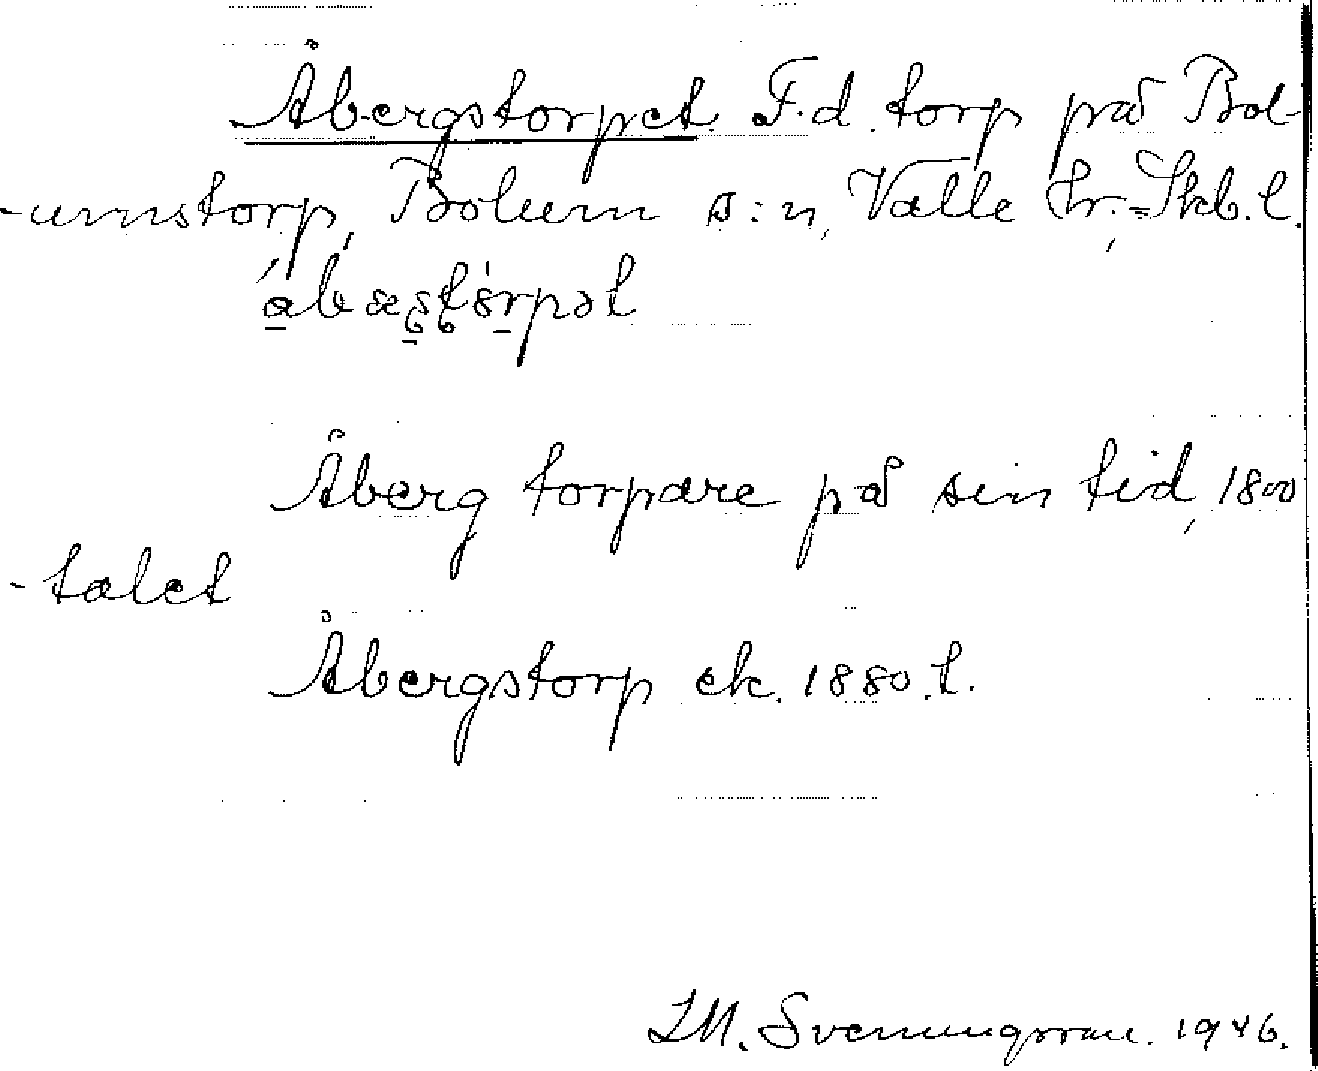 Åbergstorpet. F.d. torp på Bol-
-umstorp, Bolum s:n, Valle hr., Skb. l.

Åberg torpare på sin tid, 1800
-talet
Åbergstorp ek. 1880.t.
Svenungsson. 1946.